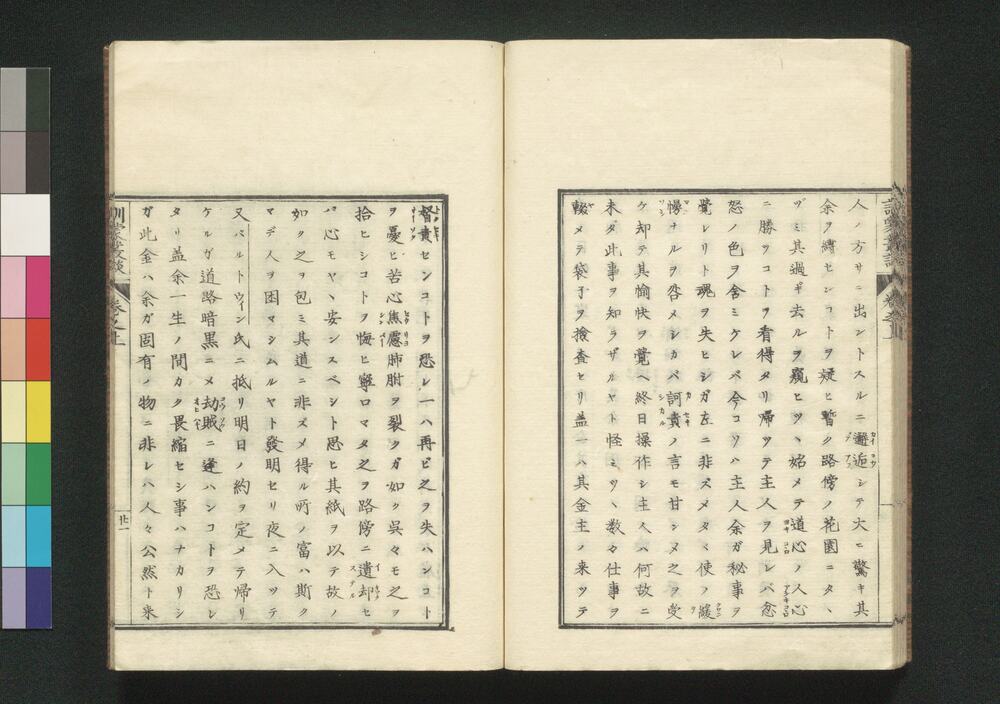 人ノ方サニ出ントスルニ邂逅シテ大ニ驚キ其
余ヲ縛セシコトヲ疑ヒ暫ク路傍ノ花園ニタヽ
ヅミ其過ギ去ルヲ窺ヒツヽ始メテ道心ノ人心
ニ勝ツコトヲ看得タリ帰ツテ主人ヲ見レバ忿
怒ノ色ヲ含ミケレバ今コソハ主人余ガ秘事ヲ
覺レリト魂ヲ失ヒシガ左ニ非ズメタヽ使ノ緩
慢ナルヲ咎メシカバ訶責ノ言モ甘ンメ之ヲ受
ケ却テ其愉快ヲ覚ヘ終日操作シ主人ハ何故ニ
未タ此事ヲ知ラザルヤト怪ミツヽ数々仕事ヲ
輟メテ袋子ヲ撿査セリ蓋一ハ其金主ノ来ツテ
督責センコトヲ恐レ一ハ再ビ之ヲ失ハンコト
ヲ憂ヒ苦心焦慮肺肝ヲ裂クガ如ク呉々モ之ヲ
拾ヒシコトヲ悔ヒ寧ロマタ之ヲ路傍ニ遺却セ
バ心モヤヽ安ンスベシト思ヒ其紙ヲ以テ故ノ
如ク之ヲ包ミ其道ニ非ズメ得ル所ノ富ハ斯ク
マデ人ヲ困マシムルヤト發明セリ夜ニ入ツテ
又バルトウィン氏ニ抵リ明日ノ約ヲ定メテ帰リ
ケルガ道路暗黒ニメ劫賊ニ逢ハンコトヲ恐レ
タリ蓋余一生ノ間カク畏縮セシ事ハナカリシ
ガ此金ハ余ガ固有ノ物ニ非レハ人々公然ト来
廿一